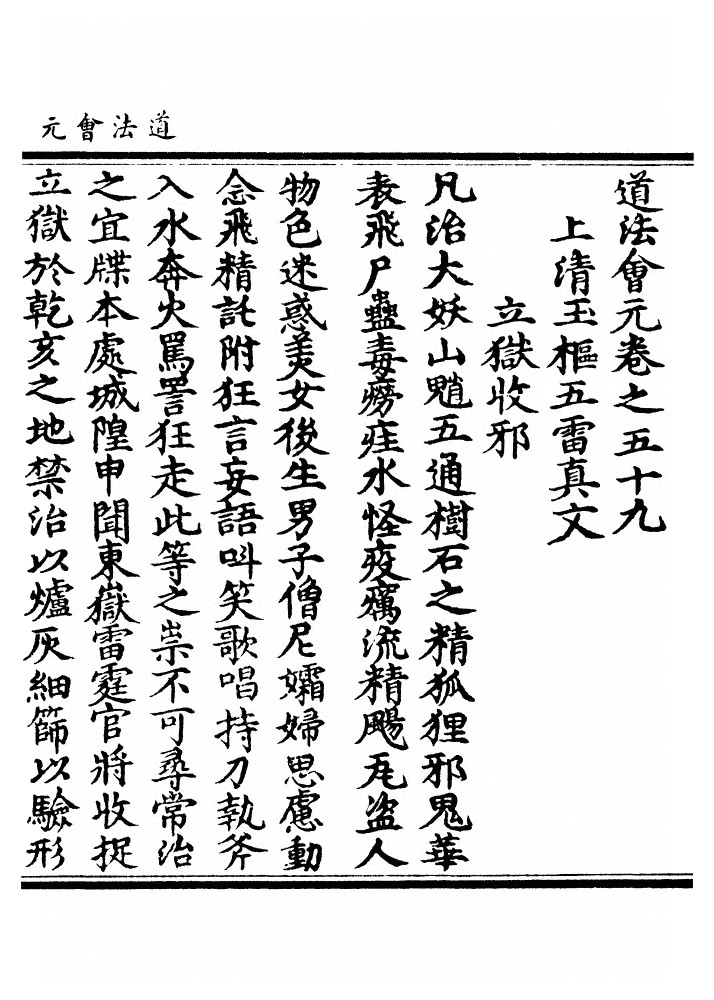 道法會元
道法會元卷之五十九
上清玉樞五雷真文
立獄收邪
凡治大妖山魈五通樹石之精狐狸邪鬼華
表飛尸蠱毒癆疰水怪疫癘流精颺瓦盜人
物色迷惑美女後生男子僧尼孀婦思慮動
念飛精託附狂言妄語叫笑歌唱持刀執斧
入水奔火罵詈狂走此等之祟不可尋常治
之宜牒本處城隍申聞東嶽雷霆官將收捉
立獄於乾亥之地禁治以爐灰細篩以驗形